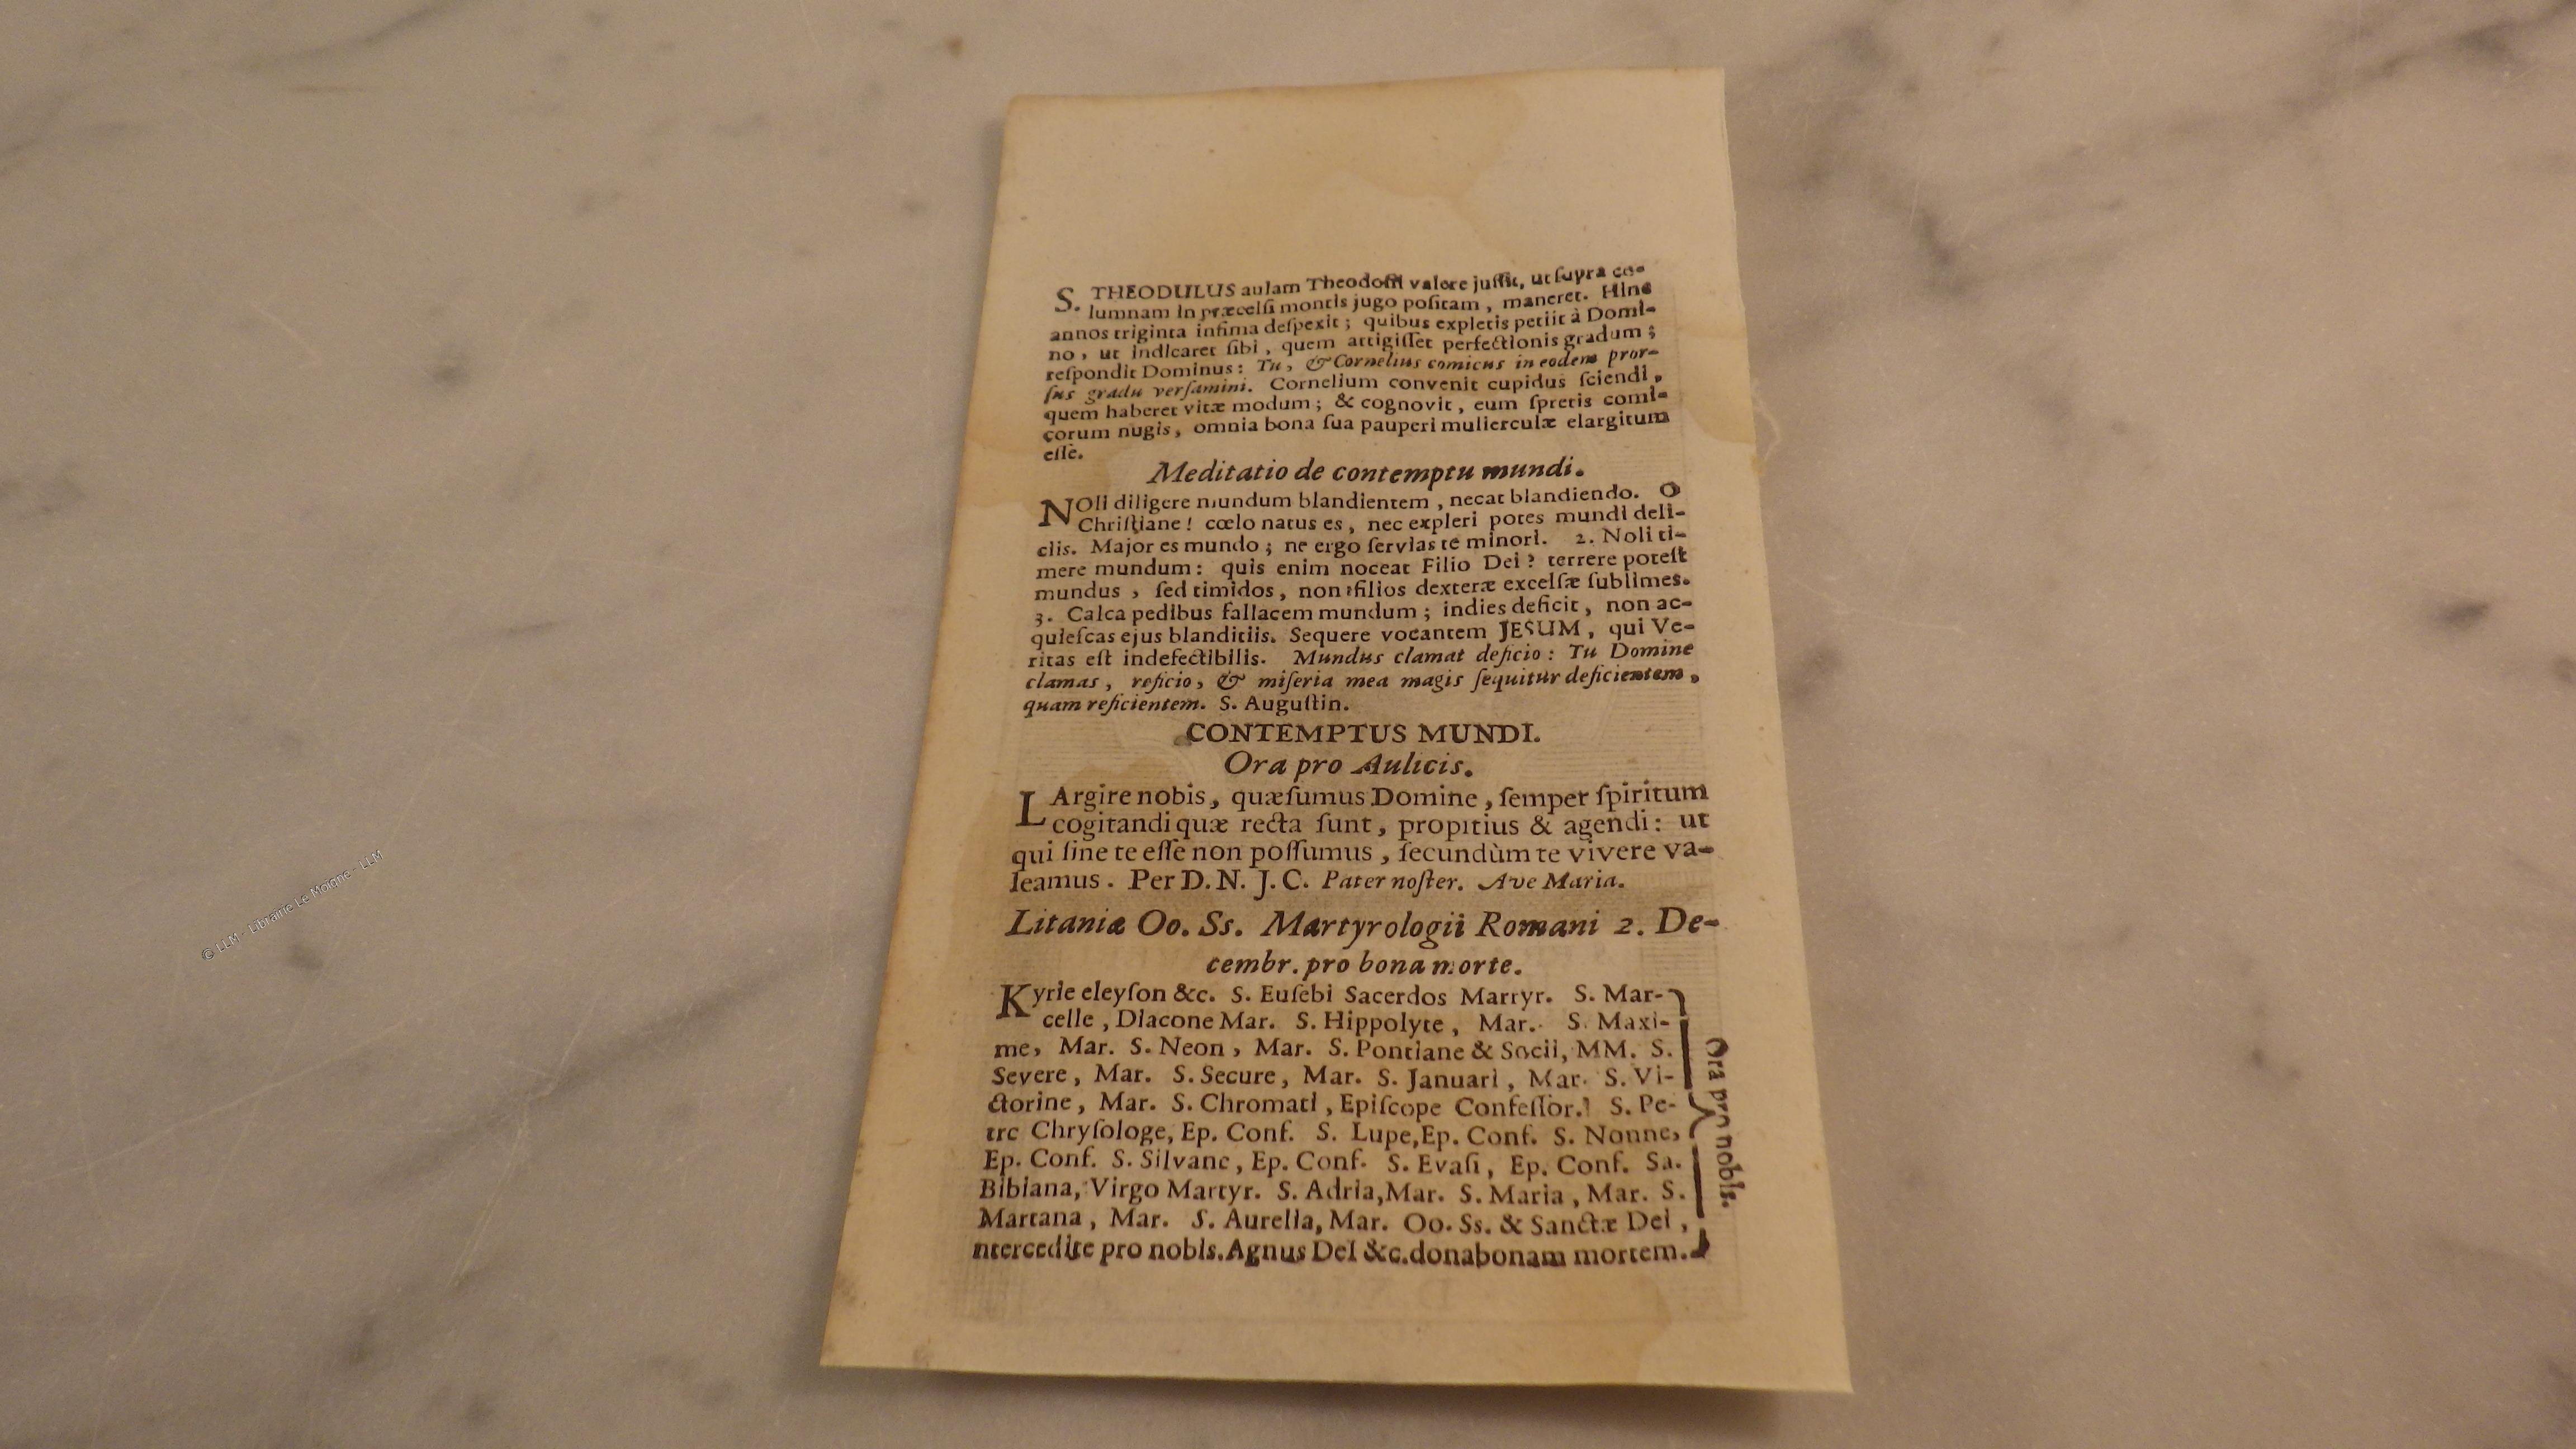 S. THEODULUS aulam Theodosii valere jussit, ut supra co-
lumnam in præcelsi montis jugo positam, maneret. Hinc
annos triginta infima despexit; quibus expletis petiit à Domi-
no, ut indicaret sibi, quem attigisset perfectionis gradum;
respondit Dominus: Tu, & Cornelius comicus in eodem pror-
sus gradu versamini. Cornelium convenit cupidus sciendi,
quem haberet vitæ modum; & cognovit, eum spretis comi-
corum nugis, omnia bona sua pauperi mulierculæ elargitum
esse.
Meditatio de contemptu mundi.
NOli diligere mundum blandientem, necat blandiendo. O
Christiane! cœlo natus es, nec expleri potes mundi deli-
ciis. Major es mundo; ne ergo servias te minori. 2. Noli ti-
mere mundum: quis enim noceat Filio Dei? terrere potest
mundus, sed timidos, non filios dexteræ excelsæ sublimes.
3. Calca pedibus fallacem mundum; indies deficit, non ac-
quiescas ejus blanditiis. Sequere vocantem JESUM, qui Ve-
ritas est indefectibilis. Mundus clamat deficio: Tu Domine
clamas, reficio, & miseria mea magis sequitur deficientem,
quam reficientem. S. Augustin.
CONTEMPTUS MUNDI.
Ora pro Aulicis.
LArgire nobis, quæsumus Domine, semper spiritum
cogitandi quæ recta sunt, propitius & agendi: ut
qui sine te esse non possumus, secundùm te vivere va-
leamus. Per D. N. J. C. Pater noster. Ave Maria.
Litaniæ Oo. Ss. Martyrologii Romani 2. De-
cembr. pro bona morte.
Kyrie eleyson &c. S. Eusebi Sacerdos Martyr. S. Mar-
celle, Diacone Mar. S. Hippolyte, Mar. S. Maxi-
me, Mar. S. Neon, Mar. S. Pontiane & Socii, MM. S.
Severe, Mar. S. Secure, Mar. S. Januari, Mar. S. Vi-
ctorine, Mar. S. Chromati, Episcope Confessor. S. Pe-
tre Chrysologe, Ep. Conf. S. Lupe, Ep. Conf. S. Nonne,
Ep. Conf. S. Silvane, Ep. Conf. S. Evasi, Ep. Conf. Sa.
Bibiana, Virgo Martyr. S. Adria, Mar. S. Maria, Mar. S.
Martana, Mar. S. Aurelia, Mar. Oo. Ss. & Sanctæ Dei,
ntercedite pro nobis. Agnus Dei &c. dona bonam mortem.
Ora pro nobis.
© LLM - Librairie Le Moigne - LLM